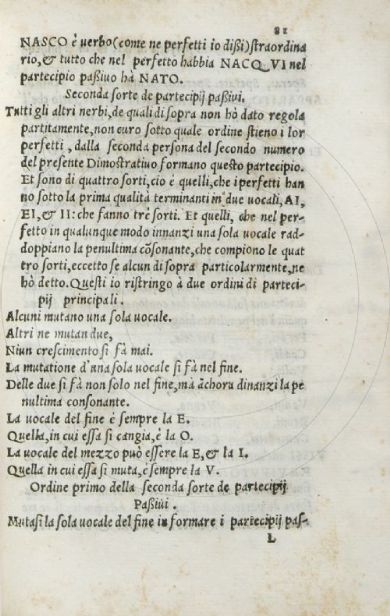 81
NASCO è uerbo(come ne perfetti io dißi)straordina
rio,& tutto che nel perfetto habbia NACQ_VI nel
participio paßiuo hà NATO.
Seconda sorte de participij paßiui.
Tutti gli altri uerbi, de quali di sopra non hò dato regola
partitamente, non curo sotto quale ordine stieno i lor
perfetti, dalla seconda persona del secondo numero
del presente Dimostratiuo formano questo participio.
Et sono di quattro sorti, cio è quelli, che i perfetti han
no sotto la prima qualità terminanti in due uocali, AI,
EI, & II: che fanno trè sorti. Et quelli, che nel per-
fetto in qualunque modo innanzi una sola uocale rad-
doppiano la penultima cōsonante, che compiono le quat
tro sorti, eccetto se alcun di sopra particolarmente, ne
hò detto. Questi io ristringo à due ordini di partici-
pij principali.
Alcuni mutano una sola uocale.
Altri ne mutan due,
Niun crescimento si fà mai.
La mutatione d'una sola uocale si fà nel fine.
Delle due si fà non solo nel fine, mà āchora dinanzi la pe
nultima consonante.
La uocale del fine è sempre la E.
Quella, in cui essa si cangia, è la O.
La uocale del mezzo può essere la E, & la I.
Quella in cui essa si muta, è sempre la V.
Ordine primo della seconda sorte de participij
Paßiui.
Mutasi la sola uocale del fine in formare i participij pas-
L